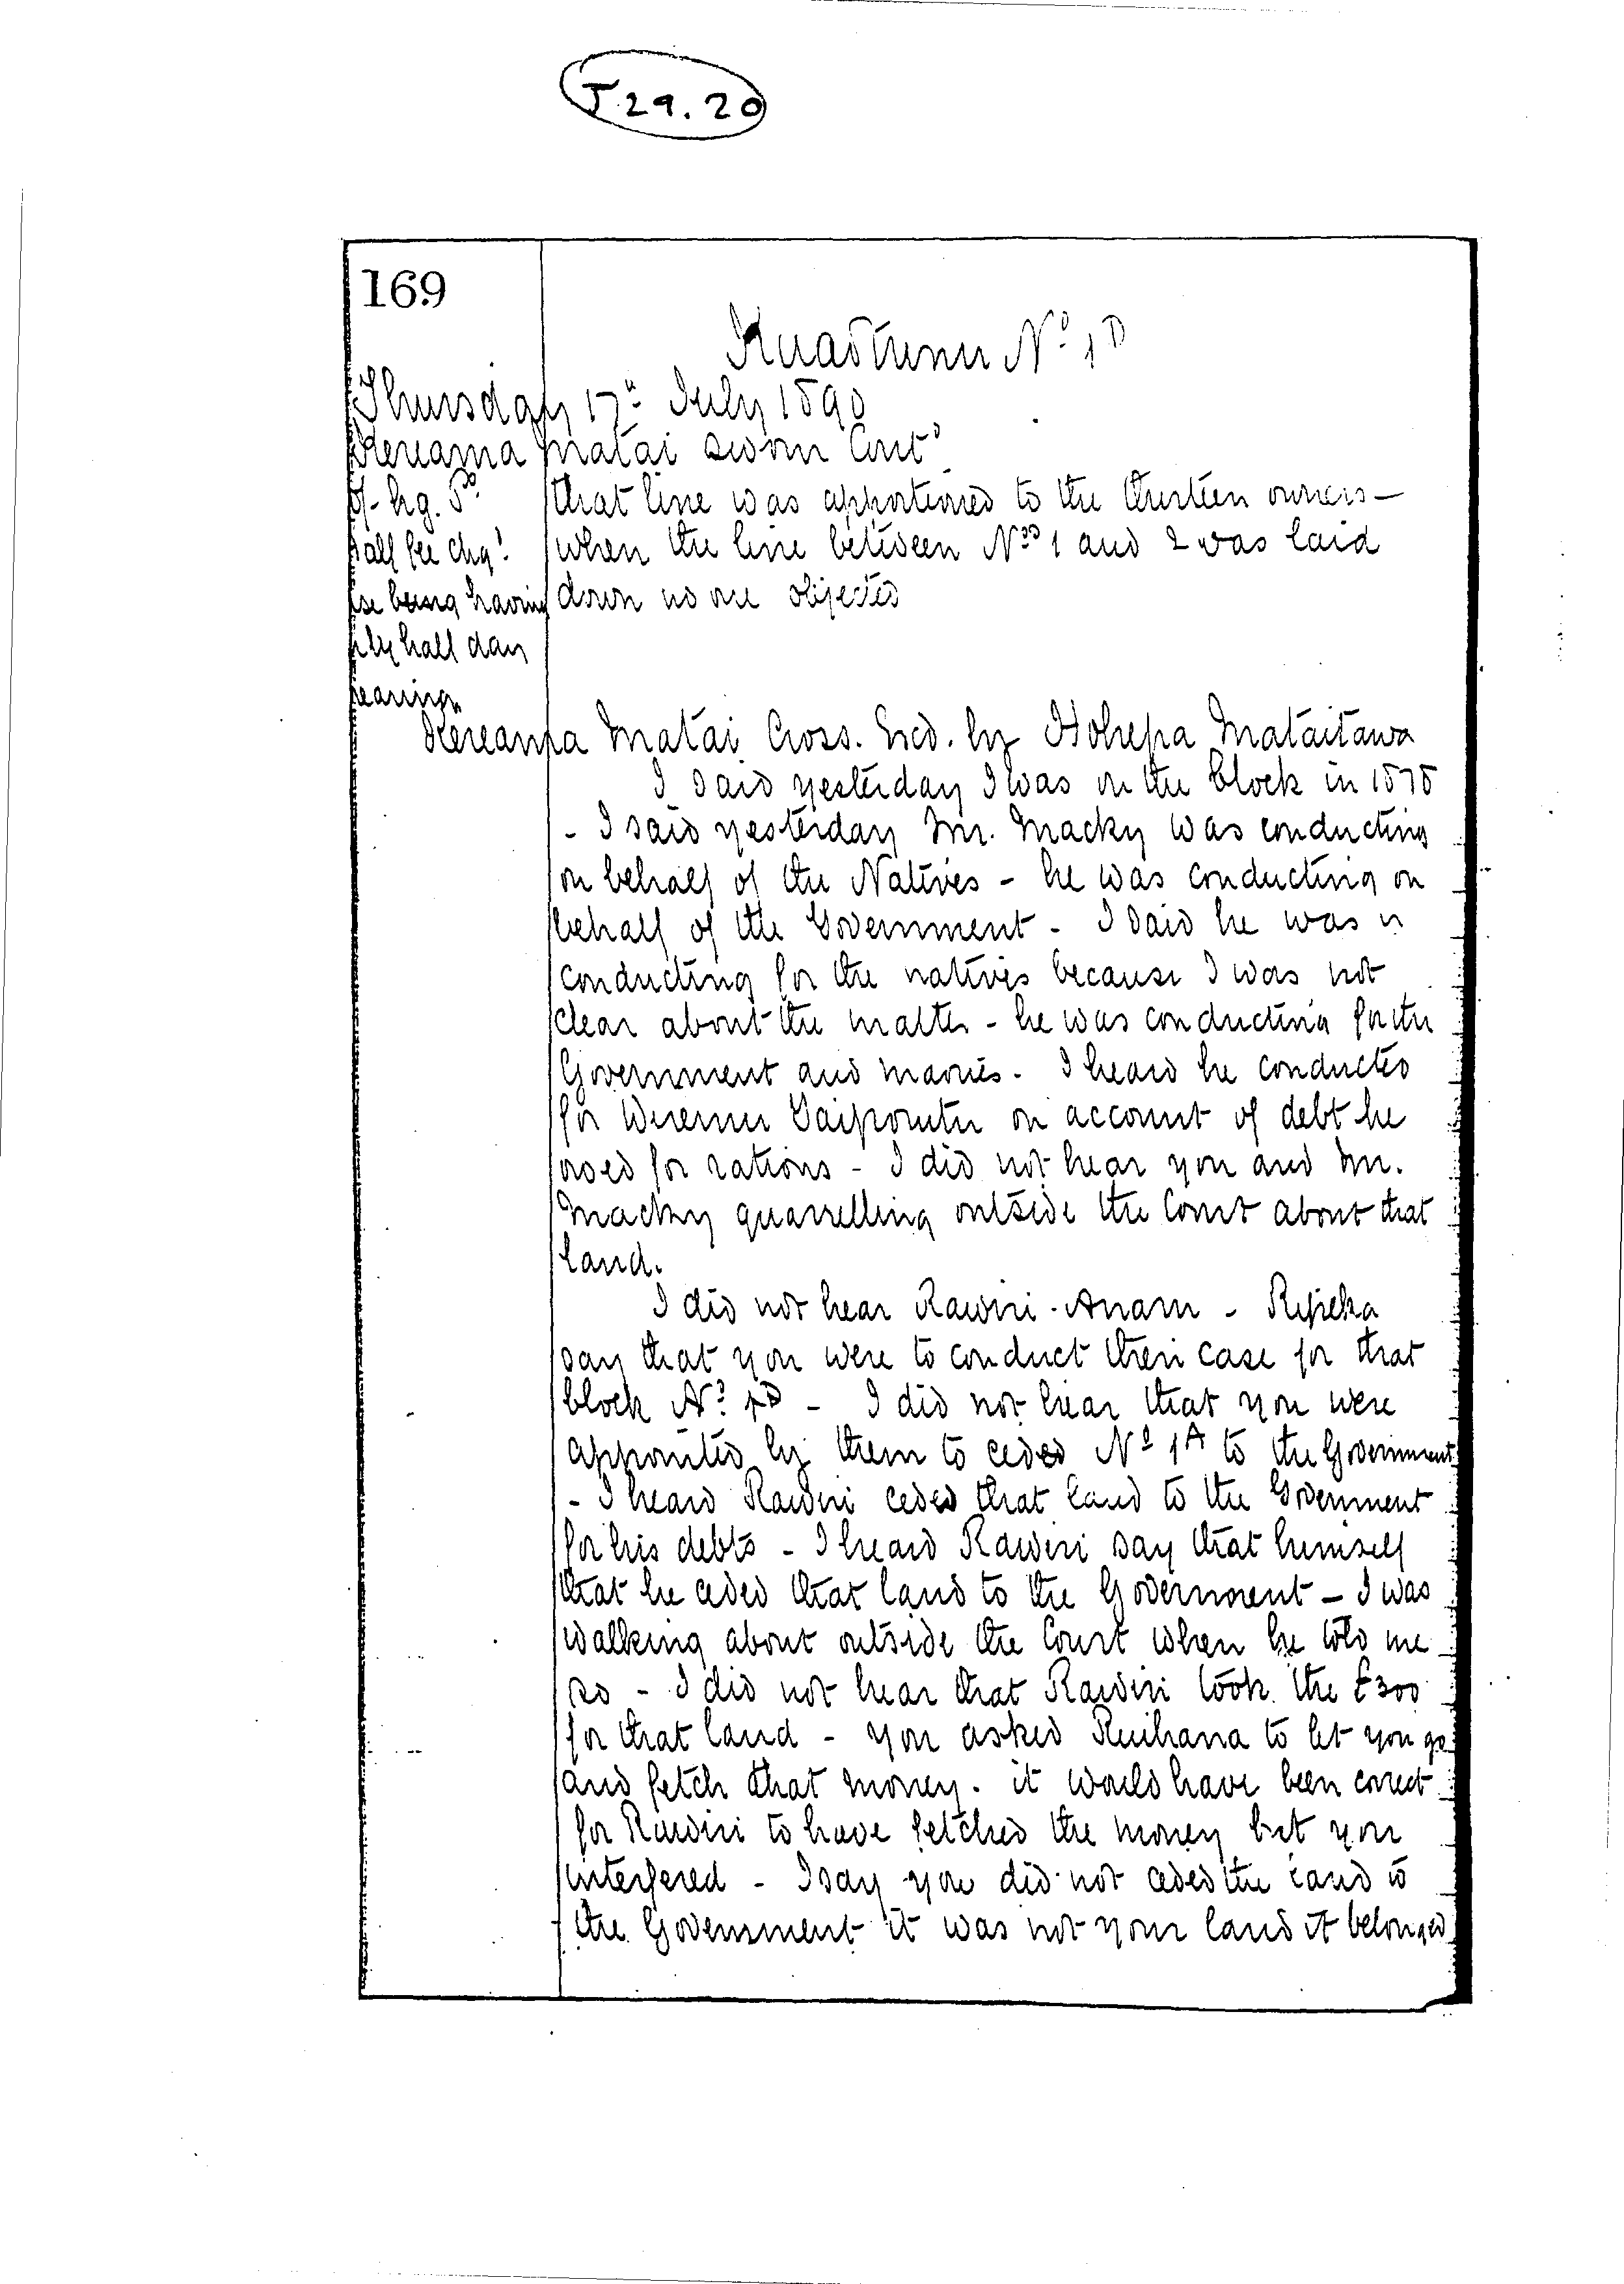 J 29.20
169
Kuaotunu No 1D
Thursday 17th July 1890
Hereama Matai sworn Contd
that line was apportioned to the thirteen owners –
half fee chg. when the line between Nos 1 and 2 was laid
being having down no one objected
only half day
hearing
Hereama Matai Cross. Exd. by Hohepa Mataitawa
I said yesterday I was on the block in 1878
- I said yesterday Mr. Macky was conducting
on behalf of the Natives - he was conducting on
behalf of the Government - I said he was
conducting for the natives because I was not
clear about the matter - he was conducting for the
Government and maories. I heard he conducted
for on account of debt he
owed for rations - I did not hear you and Mr.
Macky quarrelling outside the Court about that
land.
I did not hear Rawiri - Anaru - Ripeka
say that you were to conduct their case for that
block No. 1D - I did not hear that you were
appointed by them to ceded No 1A to the Government
- I heard Rawiri ceded that land to the Government
for his debts - I heard Rawiri say that himself
that he ceded that land to the Government - I was
walking about outside the Court when he told me
so - I did not hear that Rawiri took the £300
for that land - you asked Ruihana to let you go
and fetch that money. it would have been correct
for Rawiri to have fetched the money but you
interfered - I say you did not ceded the land to
the Government it was not your land it belonged